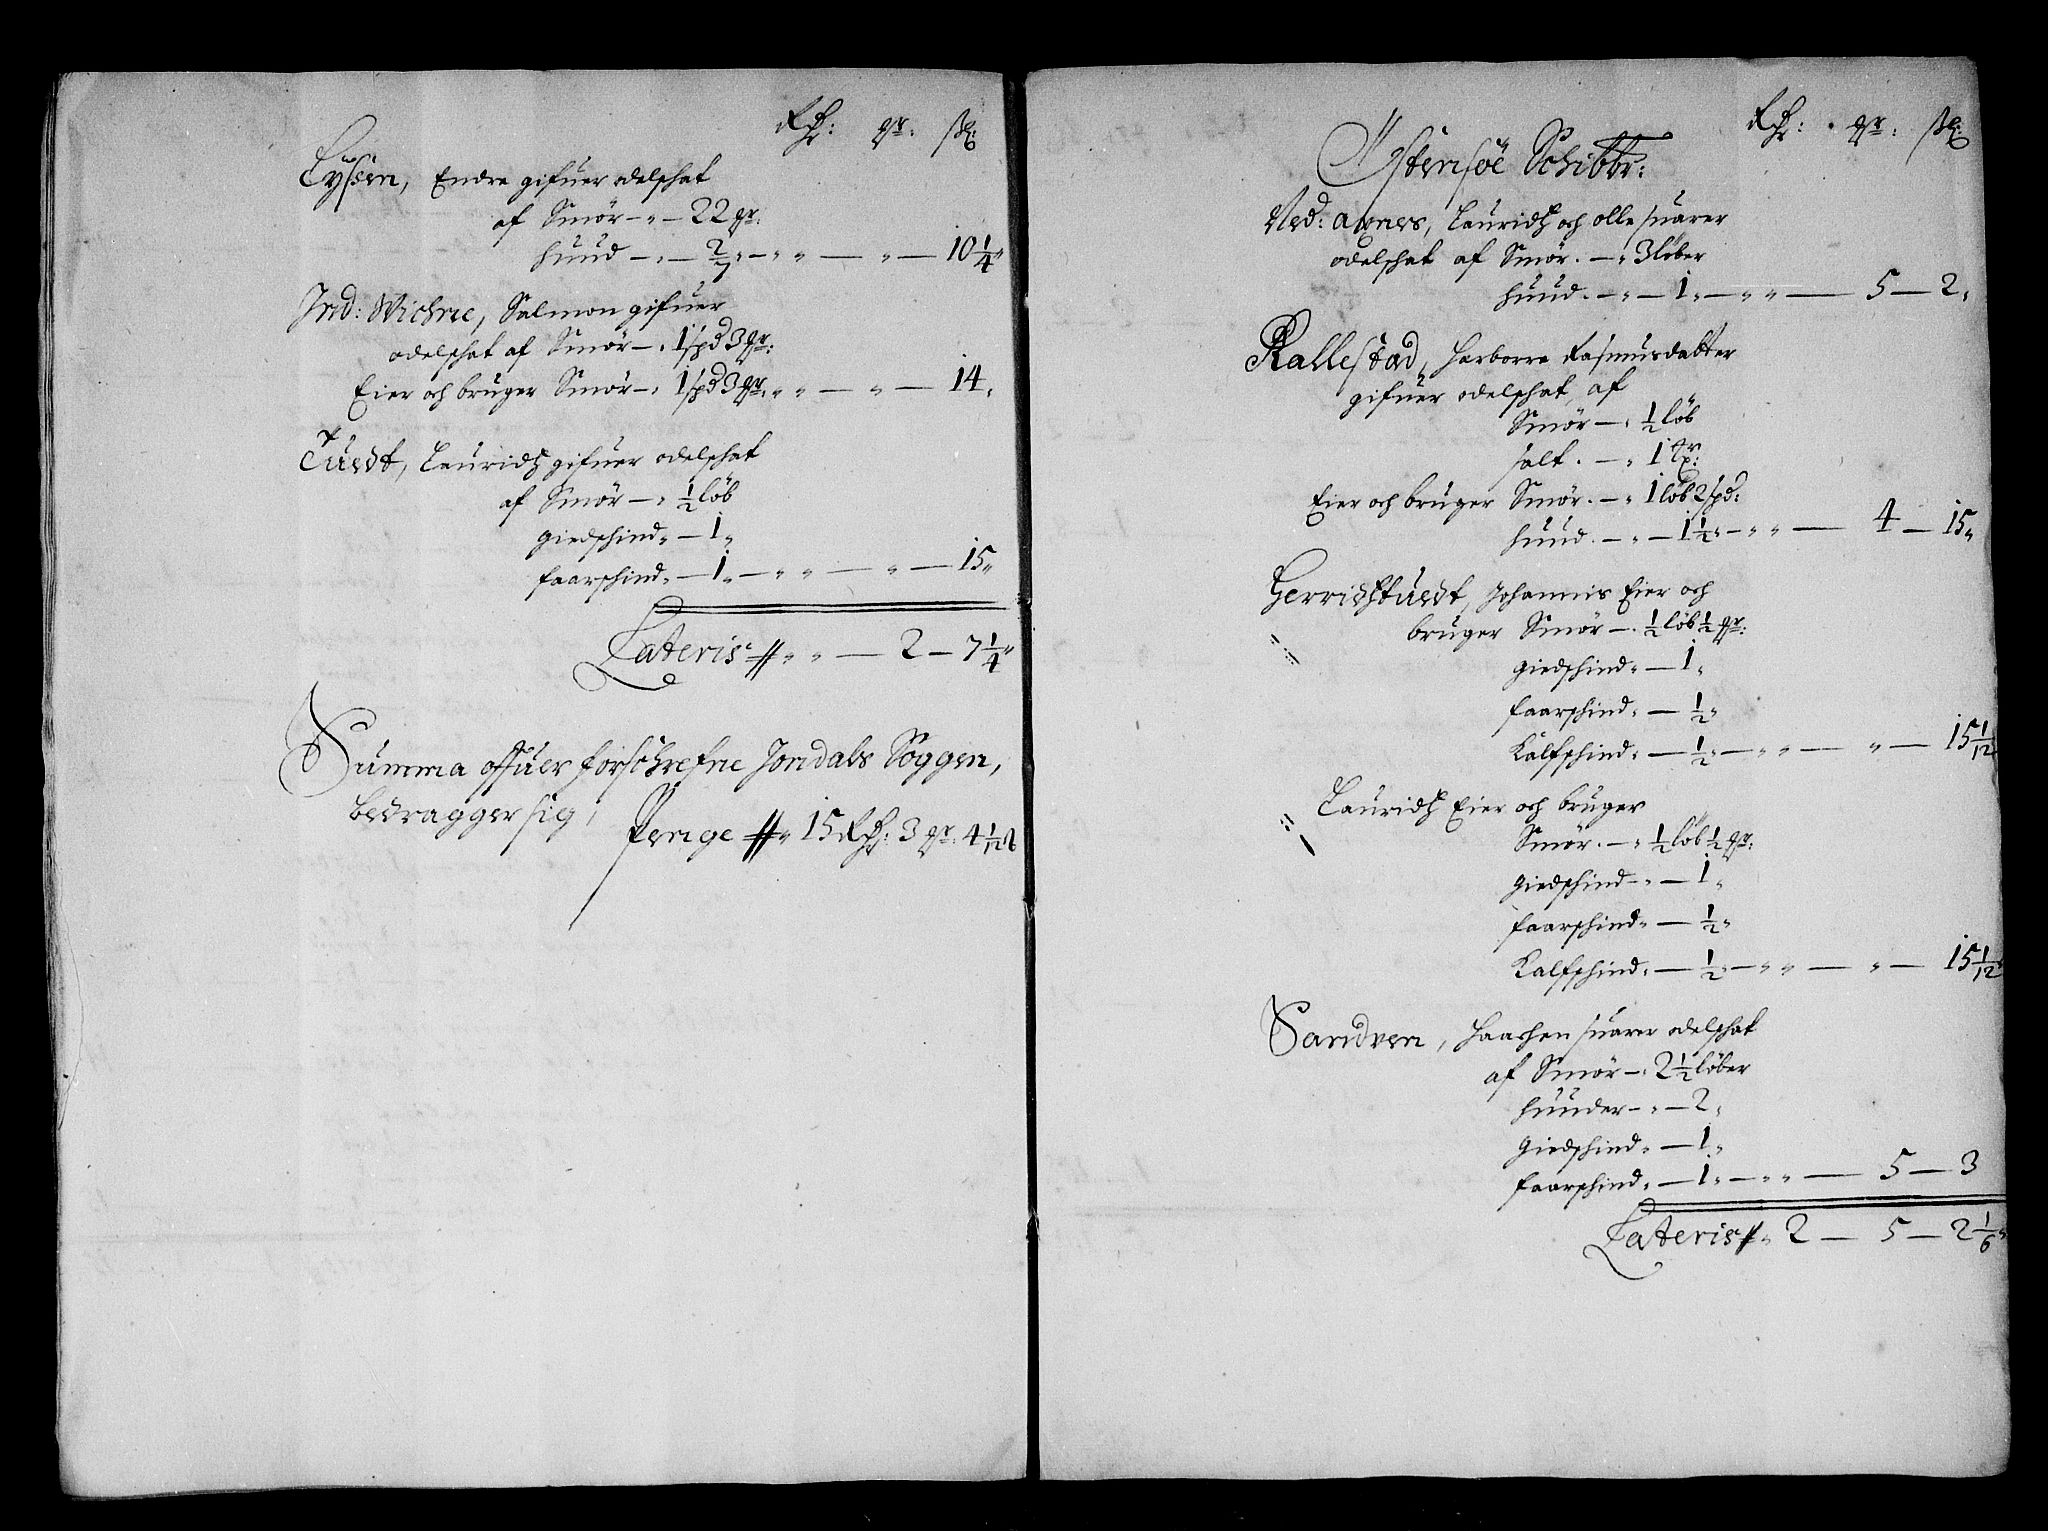 Rdr: qr: ß:
Lyssen, Endre gifuer odelschat
af Smør — „ — 22 qr.
huud — „ — 2/7 „ — „ „ — „ — 10 1/4 „
Ind: Wichne, Salmon gifuer
odelschat af Smør — „ 1 spd 3 qr:
Eier och bruger Smør — „ 1 spd 3 qr. „ „ — „ — 14 „
Tuedt, Lauridtz gifuer odelschat
af Smør — „ 1/2 løb
giedschind „ — 1 „
faarschind „ — 1 „ — „ „ — „ — 15 „
Lateris „ „ — 2 — 7 1/4 „
Summa offuer forschrefne Jondals Soggen,
bedragger sig,
Penge 15 Rdr: 3 qr. 4 1/12 ß
Rdr: qr: ß:
Østensøe Schibbr:
Ned: axnes, Lauridtz och olle suarer
odelschat af Smør. — „ 3 løber
huud. — „ — 1 „ — „ „ — 5 — 2 „
Rallestad, Harborre Rasmusdatter
gifuer odelschat, af
Smør — „ 1/2 løb
salt. — „ 1 tr:
Eier och bruger Smør. — „ 1 løb 2 spd:
huud. — „ — 1 1/2 „ — „ „ — 4 — 15 „
Gerridtztuedt, Johannis Eier och
bruger Smør — „ 1/2 løb 1/2 qr:
giedschind „ — 1 „
faarschind „ — 1/2 „
Kalfschind „ — 1/2 „ — „ „ — „ — 15 1/12
Lauridtz Eier och bruger
Smør. — „ 1/2 løb 1/2 qr:
giedschind „ — 1 „
faarschind „ — 1/2 „
Kalfschind „ — 1/2 „ — „ „ — „ — 15 1/12
Sandven, Haachen suarer odelschat
af Smør — „ 2 1/2 løber
huuder — „ — 2 „
giedschind „ — 1 „
faarschind „ — 1 „ — „ „ — 5 — 3
Lateris „ 2 — 5 — 2 1/6 „